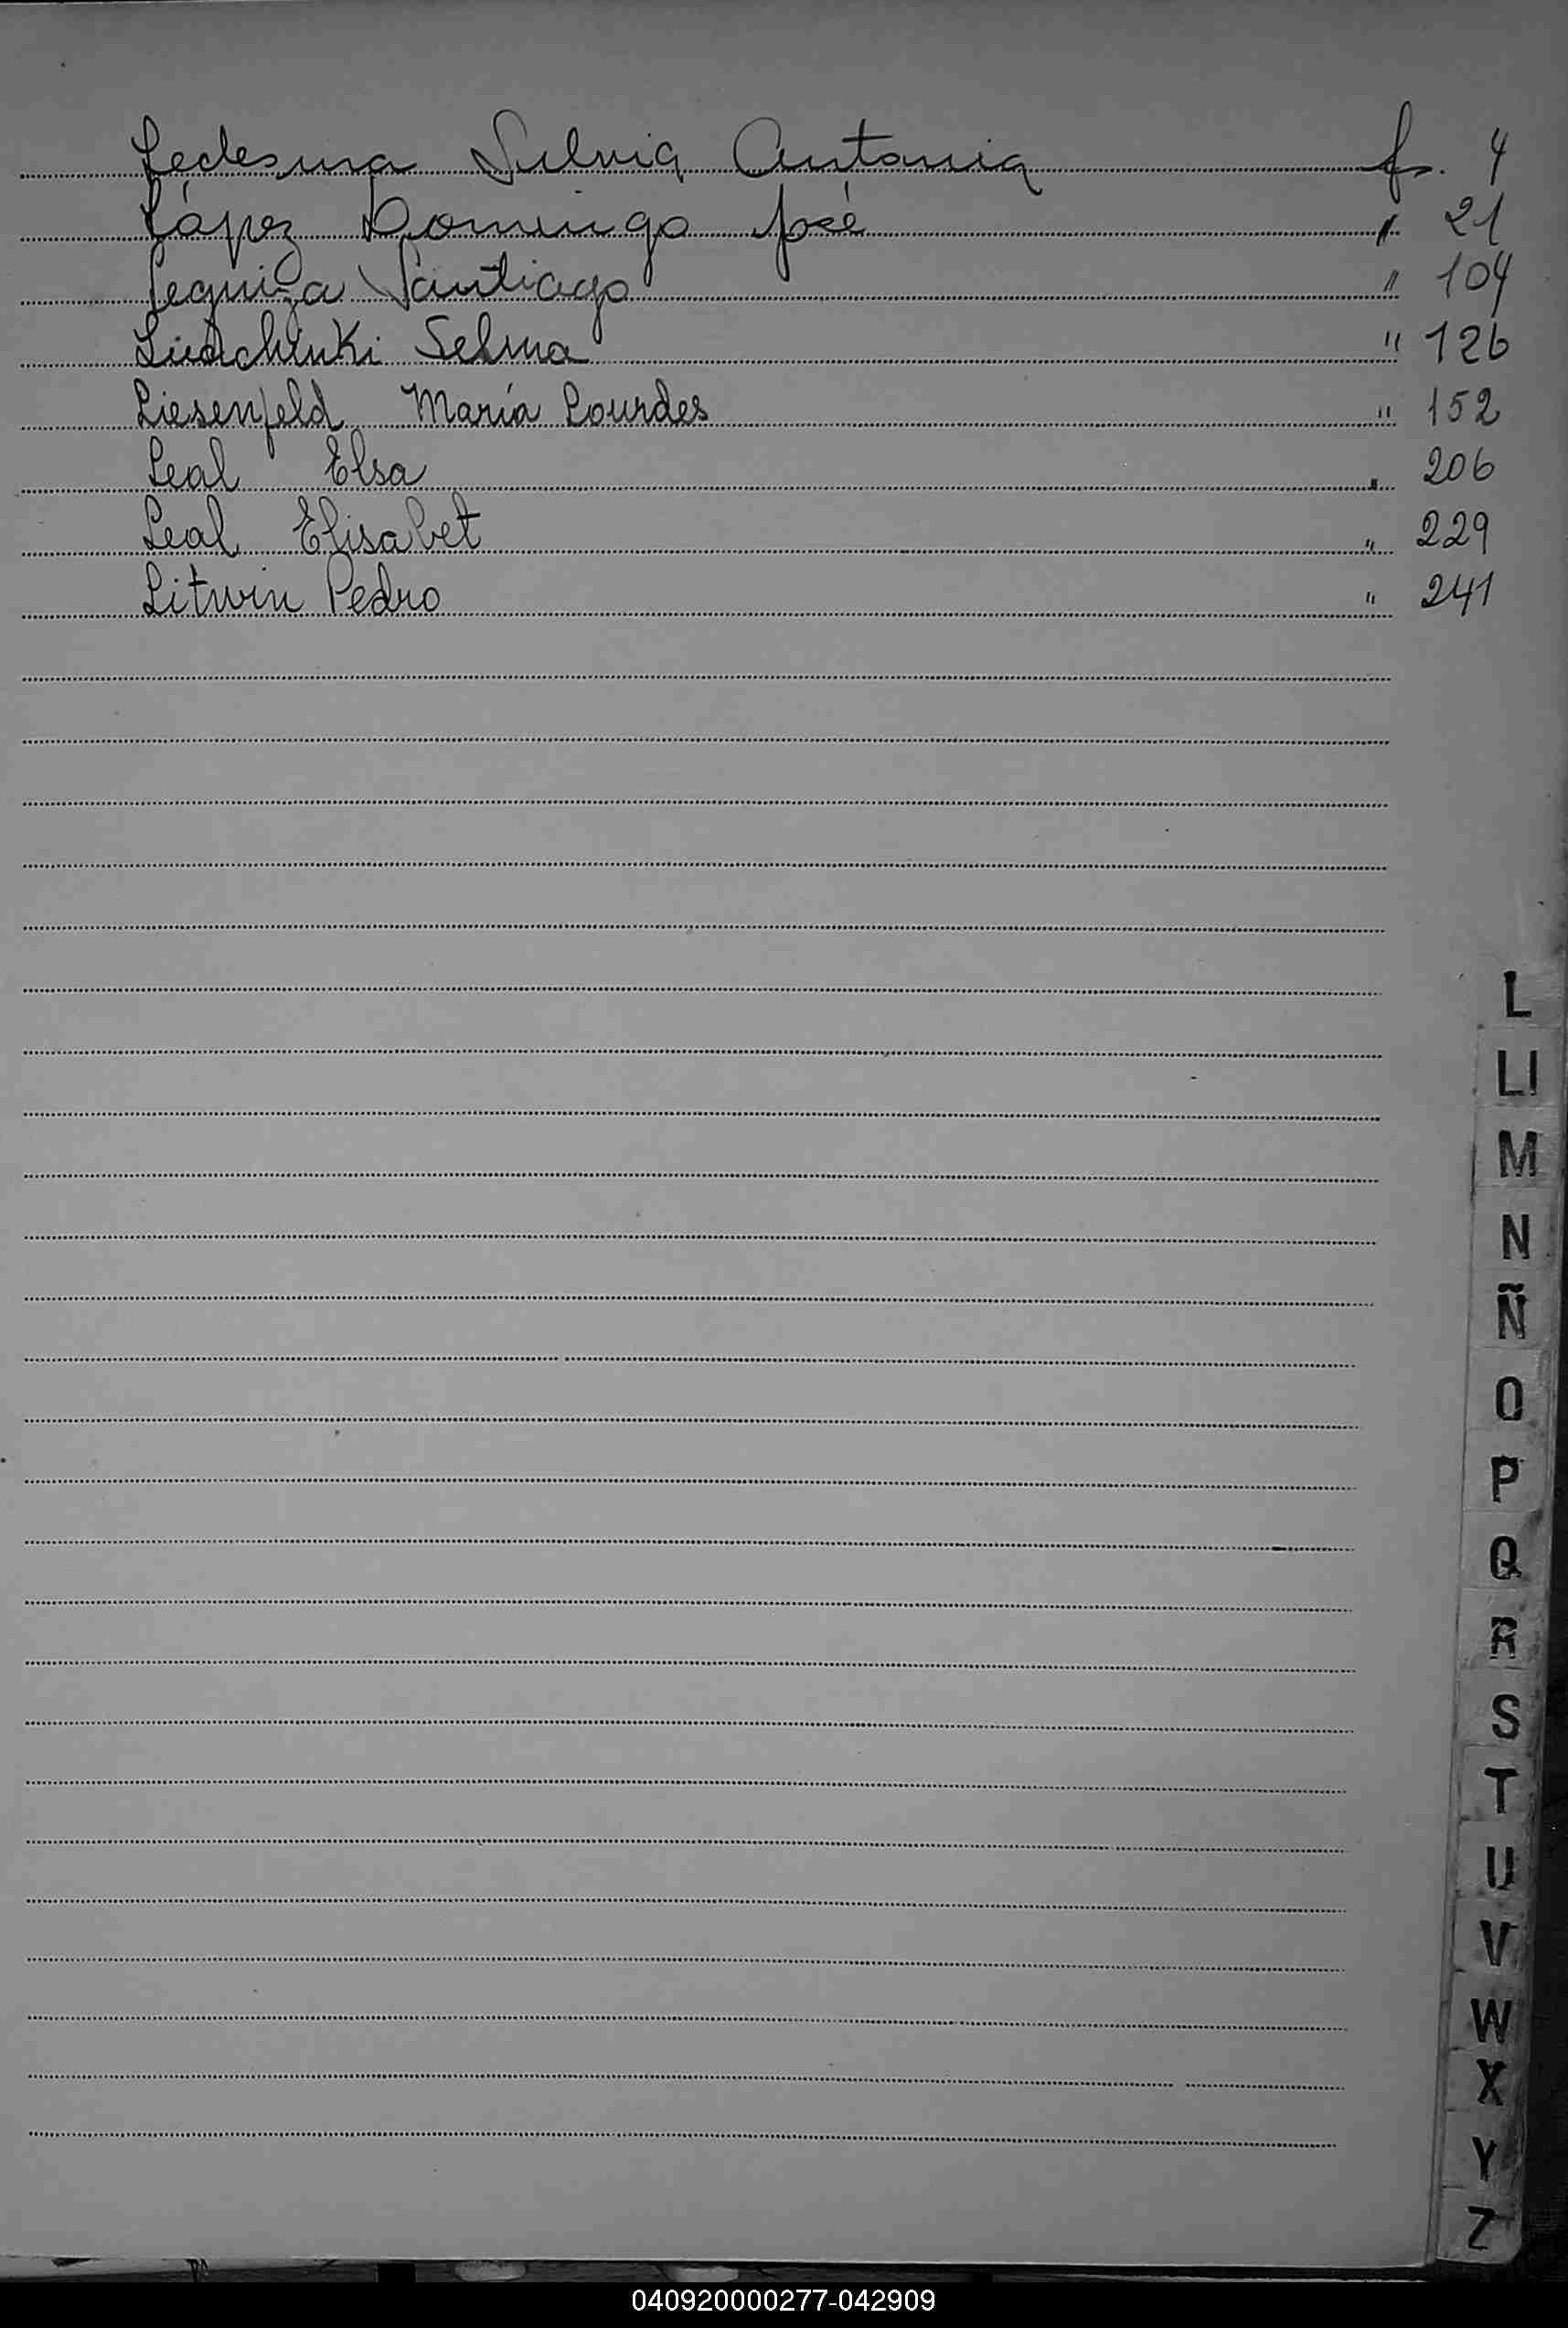 Ledesma Silvia Antonia fs. 4
López Domingo José " 21
Leguiza Santiago " 104
Selma " 126
Liesenfeld María Lourdes " 152
Leal Elsa " 206
Leal Elisabet " 229
Litwin Pedro " 241
L
Ll
M
N
Ñ
O
P
Q
R
S
T
U
V
W
X
Y
Z
040920000277-042909